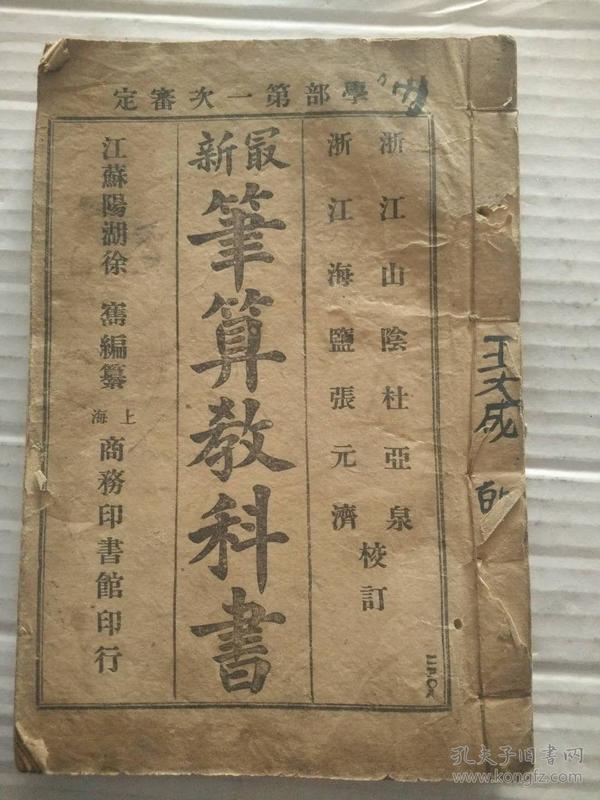 學部第一次審定
浙江山陰杜亞泉
浙江海鹽張元濟
校訂
最新
筆算教科書
江蘇陽湖徐寯編纂
上海
商務印書館印行
王文成
孔夫子旧书网
www.kongfz.com